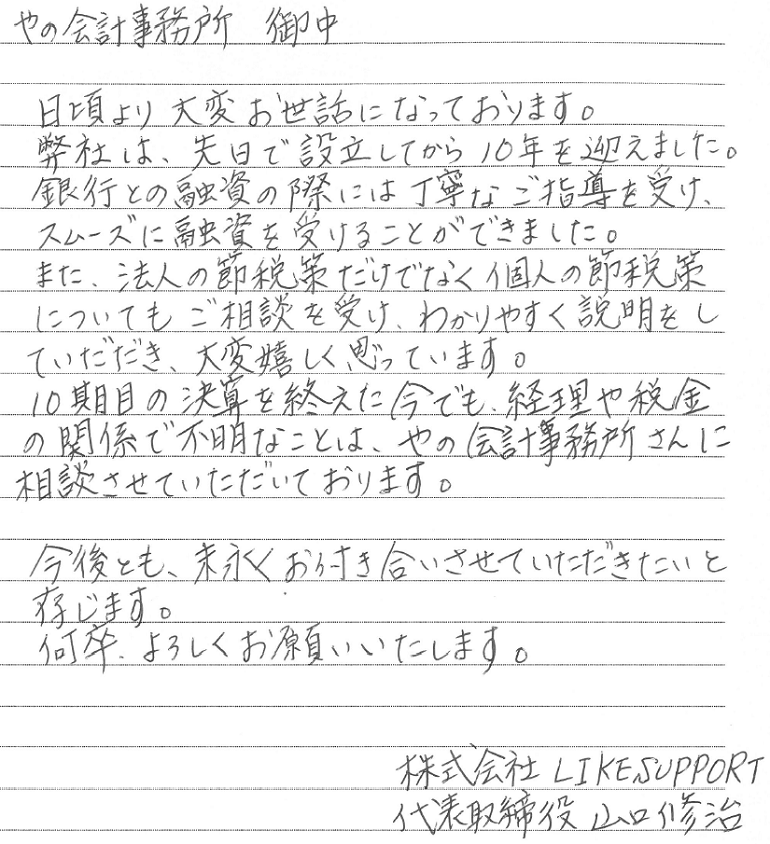 やの会計事務所 御中
日頃より大変お世話になっております。
弊社は、先日で設立してから10年を迎えました。
銀行との融資の際には丁寧なご指導を受け、
スムーズに融資を受けることができました。
また、法人の節税策だけでなく個人の節税策
についてもご相談を受け、わかりやすく説明をし
ていただだき、大変嬉しく思っています。
10期目の決算を終えた今でも、経理や税金
の関係で不明なことは、やの会計事務所さんに
相談させていただいております。
今後とも、末永くお付き合いさせていただきたいと
存じます。
何卒、よろしくお願いいたします。
株式会社 LIKE.SUPPORT
代表取締役 山口修治